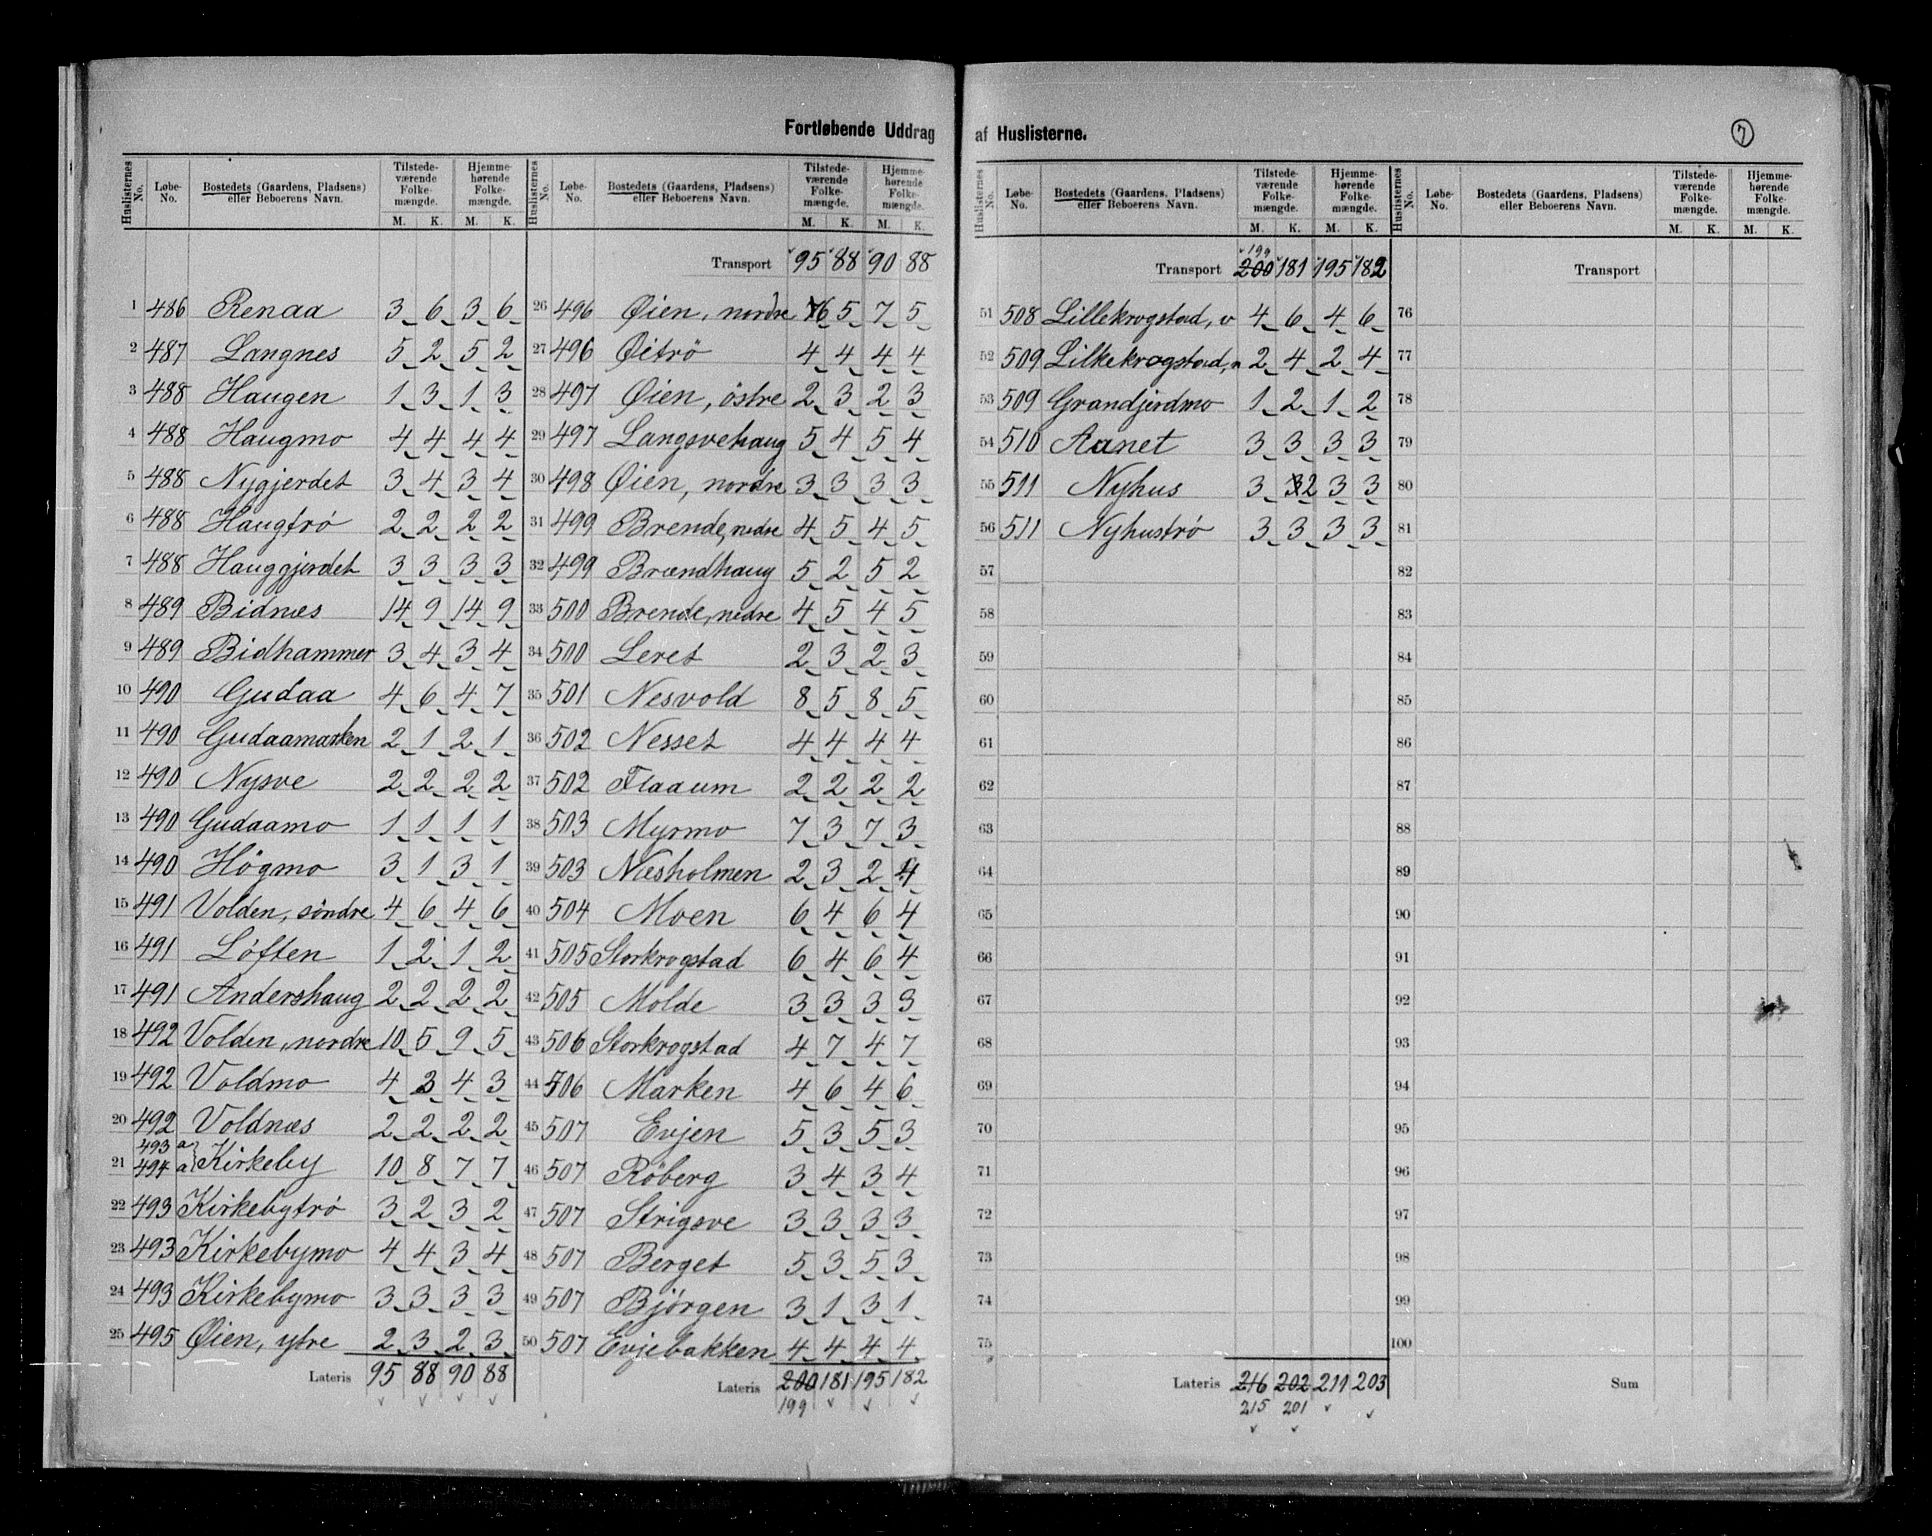 Fortløbende Uddrag af Huslisterne.
7
Huslisternes No. Løbe-No. Bostedets (Gaardens, Pladsens) eller Beboerens Navn. Tilstedeværende Folkemængde. M. K. Hjemmehørende Folkemængde. M. K.
1 486 Renaa 3 6 3 6
2 487 Langnes 5 2 5 2
3 488 Haugen 1 3 1 3
4 488 Haugmo 4 4 4 4
5 488 Nygjerdet 3 4 3 4
6 488 Haugtrø 2 2 2 2
7 488 Hauggjerdet 3 3 3 3
8 489 Bidnæs 14 9 14 9
9 489 Bidhammer 3 4 3 4
10 490 Gudaa 4 6 4 7
11 490 Gudaamarken 2 1 2 1
12 490 Nysve 2 2 2 2
13 490 Gudaamo 1 1 1 1
14 490 Högmo 3 1 3 1
15 491 Volden, söndre 4 6 4 6
16 491 Løften 1 2 1 2
17 491 Andershaug 2 2 2 2
18 492 Volden, nordre 10 5 9 5
19 492 Voldmo 4 3 4 3
20 492 Voldnæs 2 2 2 2
21 493 a 494 a Kirkeby 10 8 7 7
22 493 Kirkebytrö 3 2 3 2
23 493 Kirkebymo 4 4 3 4
24 493 Kirkebymo 3 3 3 3
25 495 Øien, ytre 2 3 2 3
Lateris 95 88 90 88
Huslisternes No. Løbe-No. Bostedets (Gaardens, Pladsens) eller Beboerens Navn. Tilstedeværende Folkemængde. M. K. Hjemmehørende Folkemængde. M. K.
Transport 95 88 90 88
26 496 Øien, nordre 6 5 7 5
27 496 Øitrö 4 4 4 4
28 497 Øien, östre 2 3 2 3
29 497 Langsvehaug 5 4 5 4
30 498 Øien, nordre 3 3 3 3
31 499 Brende, nedre 4 5 4 5
32 499 Brændhaug 5 2 5 2
33 500 Brende, nedre 4 5 4 5
34 500 Leret 2 3 2 3
35 501 Nesvold 8 5 8 5
36 502 Nesset 4 4 4 4
37 502 Flaaum 2 2 2 2
38 503 Myrmo 7 3 7 3
39 503 Næsholmen 2 3 2 4
40 504 Moen 6 4 6 4
41 505 Storkrogstad 6 4 6 4
42 505 Molde 3 3 3 3
43 506 Storkrogstad 4 7 4 7
44 506 Marken 4 6 4 6
45 507 Evjen 5 3 5 3
46 507 Röberg 3 4 3 4
47 507 Strigsve 3 3 3 3
48 507 Berget 5 3 5 3
49 507 Bjørgen 3 1 3 1
50 507 Evjebakken 4 4 4 4
Lateris 200 181 195 182
199
Huslisternes No. Løbe-No. Bostedets (Gaardens, Pladsens) eller Beboerens Navn. Tilstedeværende Folkemængde. M. K. Hjemmehørende Folkemængde. M. K.
199
Transport 200 181 195 182
51 508 Lillekrogstad, v 4 6 4 6
52 509 Lillekrogstad, n 2 4 2 4
53 509 Grandjerdmo 1 2 1 2
54 510 Aanet 3 3 3 3
55 511 Nyhus 3 3 2 3 3
56 511 Nyhuströ 3 3 3 3
57
58
59
60
61
62
63
64
65
66
67
68
69
70
71
72
73
74
75
Lateris 216 202 211 203
215 201
Huslisternes No. Løbe-No. Bostedets (Gaardens, Pladsens) eller Beboerens Navn. Tilstedeværende Folkemængde. M. K. Hjemmehørende Folkemængde. M. K.
Transport
76
77
78
79
80
81
82
83
84
85
86
87
88
89
90
91
92
93
94
95
96
97
98
99
100
Sum